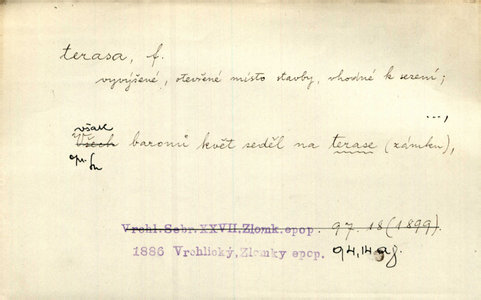 terasa, f.
vyvýšené, otevřené místo stavby, vhodné k sezení;
...,
však
Všech baronů květ seděl na terase (zámku),
opr.
Vrchl. Sebr. XXVII, Zlomk. epop. 97. 18 (1899).
1886 Vrchlický, Zlomky epop. 94,14